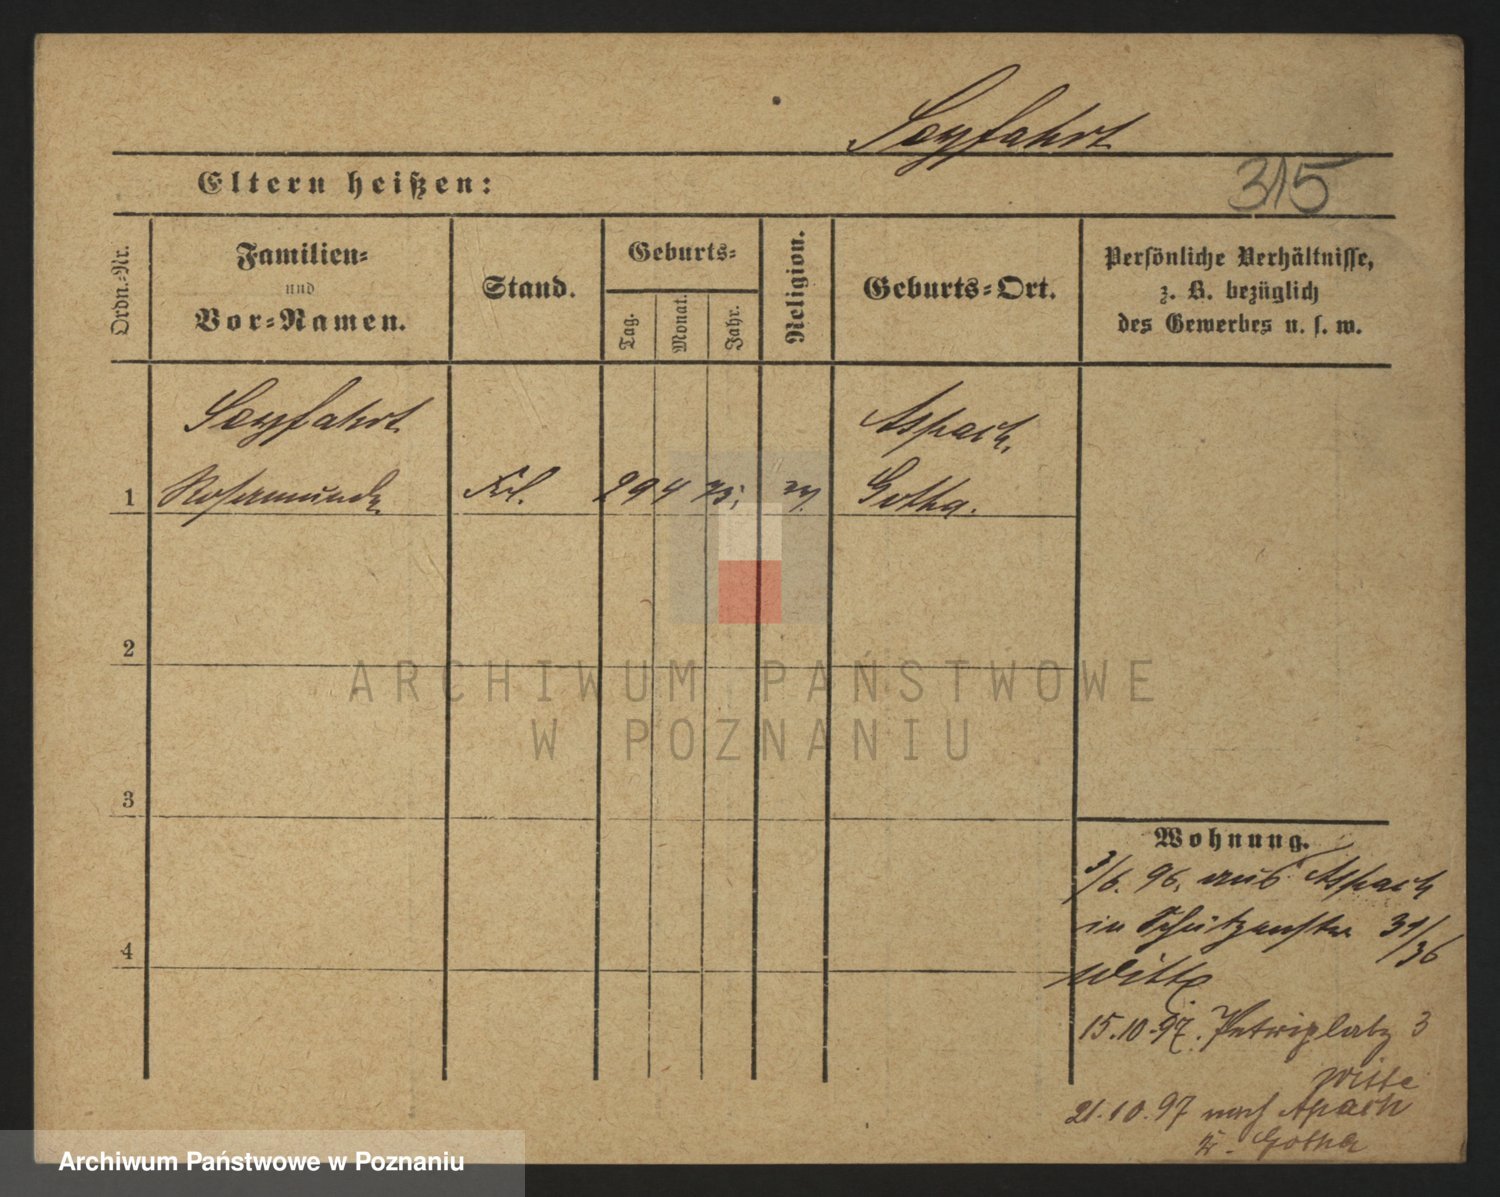 Seyfahrt
Eltern heißen:
315
Ordn.-Nr.
Familien-
und
Vor-Namen.
Stand.
Geburts-
Tag.
Monat.
Jahr.
Religion.
Geburts-Ort.
Persönliche Verhältnisse,
z. B. bezüglich
des Gewerbes u. s. w.
Seyfahrt
Aspach,
1 Rosamunde Frl. 29 4 75, Gotha.
2
3
4
Wohnung.
3/6. 96. aus Aspach
in Schützenstr 31/36
Witte
15.10.97. Petriplatz 3
Witte
21.10.97 nach Aspach
Gotha
ARCHIWUM PAŃSTWOWE
W POZNANIU
Archiwum Państwowe w Poznaniu